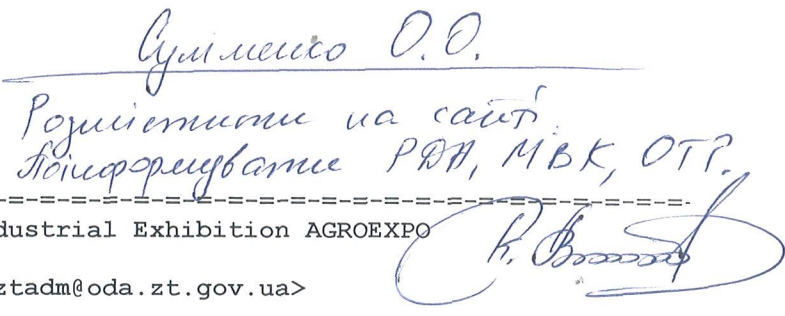 Суліменко О.О.
Розмістити на сайті.
Поінформувати РДА, МВК, ОТГ.
=-=-=-=-=-=-=-=-=-=-=-=-=-=-=-=-=-=-=-=-=-=-=-=-=-
dustrial Exhibition AGROEXPO
ztadm@oda.zt.gov.ua>